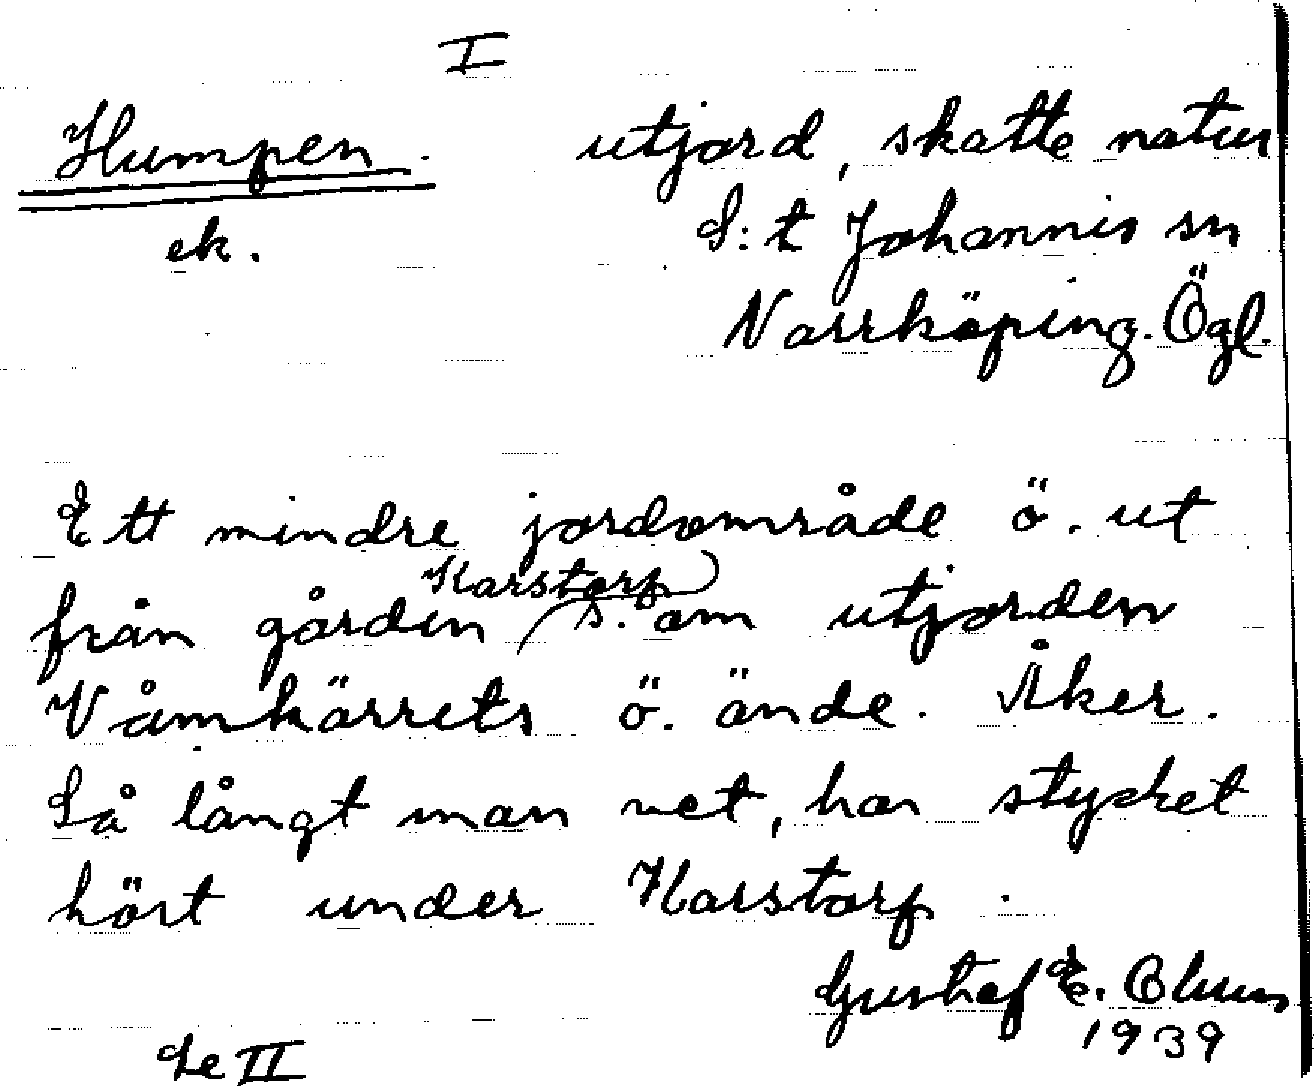 I
Humpen. utjord, skatte natur
ek. S:t Johannis sn
Norrköping. Ögl.
Ett mindre jordområde ö. ut
Karstorp
från gården s. om utjorden
Våmkärrets ö. ände. Åker.
Så långt man vet, har stycket
hört under Karstorp.
Gustaf E.
1939
Se II